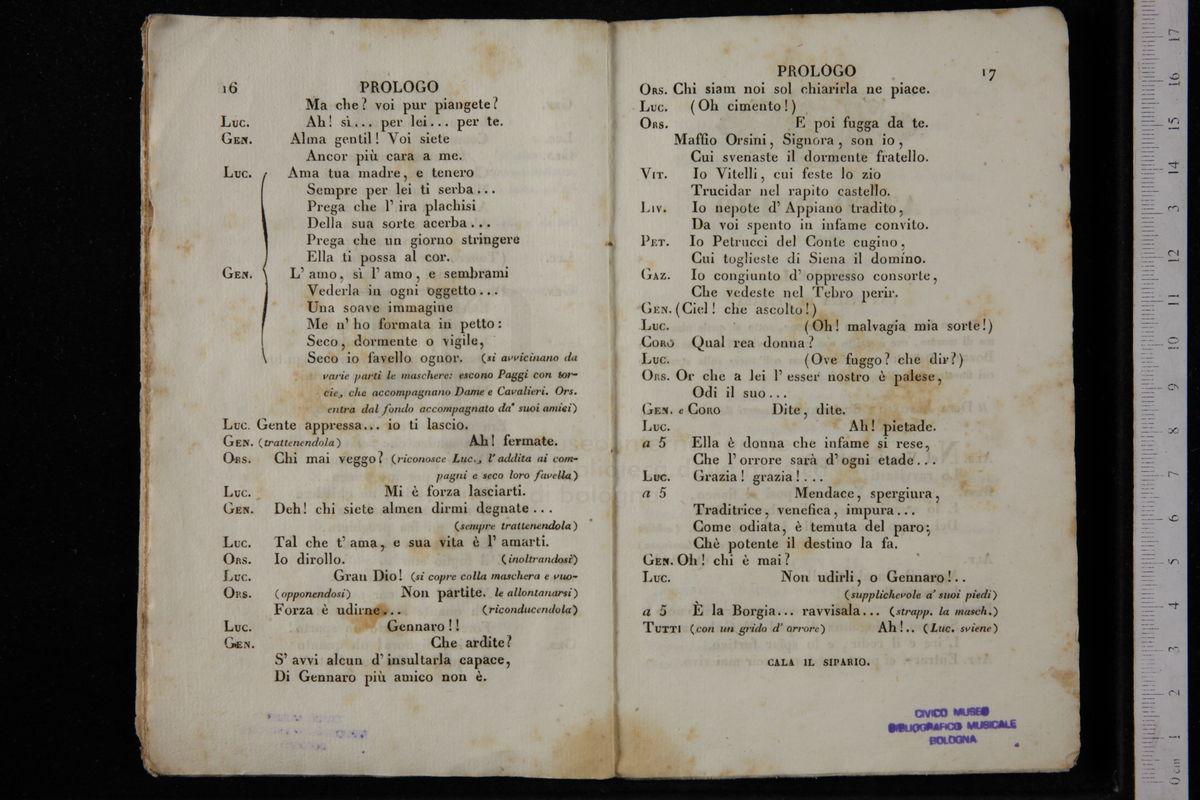 16 PROLOGO
Ma che? voi pur piangete?
Luc. Ah! sì... per lei... per te.
Gen. Alma gentil! Voi siete
Ancor più cara a me.
Luc. Ama tua madre, e tenero
Sempre per lei ti serba...
Prega che l' ira plachisi
Della sua sorte acerba...
Prega che un giorno stringere
Ella ti possa al cor.
Gen. L' amo, sì l' amo, e sembrami
Vederla in ogni oggetto...
Una soave immagine
Me n' ho formata in petto:
Seco, dormente o vigile,
Seco io favello ognor. (si avvicinano da
varie parti le maschere: escono Paggi con tor-
cie, che accompagnano Dame e Cavalieri. Ors.
entra dal fondo accompagnato da' suoi amici)
Luc. Gente appressa... io ti lascio.
Gen. (trattenendola) Ah! fermate.
Ors. Chi mai veggo? (riconosce Luc., l' addita ai com-
pagni e seco loro favella)
Luc. Mi è forza lasciarti.
Gen. Deh! chi siete almen dirmi degnate...
(sempre trattenendola)
Luc. Tal che t' ama, e sua vita è l' amarti.
Ors. Io dirollo. (inoltrandosi)
Luc. Gran Dio! (si copre colla maschera e vuo-
Ors. (opponendosi) Non partite. le allontanarsi)
Forza è udirne... (riconducendola)
Luc. Gennaro!!
Gen. Che ardite?
S' avvi alcun d' insultarla capace,
Di Gennaro più amico non è.
PROLOGO 17
Ors. Chi siam noi sol chiarirla ne piace.
Luc. (Oh cimento!)
Ors. E poi fugga da te.
Maffio Orsini, Signora, son io,
Cui svenaste il dormente fratello.
Vit. Io Vitelli, cui feste lo zio
Trucidar nel rapito castello.
Liv. Io nepote d' Appiano tradito,
Da voi spento in infame convito.
Pet. Io Petrucci del Conte cugino,
Cui toglieste di Siena il domino.
Gaz. Io congiunto d' oppresso consorte,
Che vedeste nel Tebro perir.
Gen. (Ciel! che ascolto!)
Luc. (Oh! malvagia mia sorte!)
Coro Qual rea donna?
Luc. (Ove fuggo? che dir?)
Ors. Or che a lei l' esser nostro è palese,
Odi il suo...
Gen. e Coro Dite, dite.
Luc. Ah! pietade.
a 5 Ella è donna che infame si rese,
Che l' orrore sarà d' ogni etade...
Luc. Grazia! grazia!...
a 5 Mendace, spergiura,
Traditrice, venefica, impura...
Come odiata, è temuta del paro;
Chè potente il destino la fa.
Gen. Oh! chi è mai?
Luc. Non udirli, o Gennaro!..
(supplichevole a' suoi piedi)
a 5 È la Borgia... ravvisala... (strapp. la masch.)
Tutti (con un grido d' orrore) Ah!.. (Luc. sviene)
CALA IL SIPARIO.
CIVICO MUSEO
BIBLIOGRAFICO MUSICALE
BOLOGNA
0 cm 1 2 3 4 5 6 7 8 9 10 11 12 13 14 15 16 17